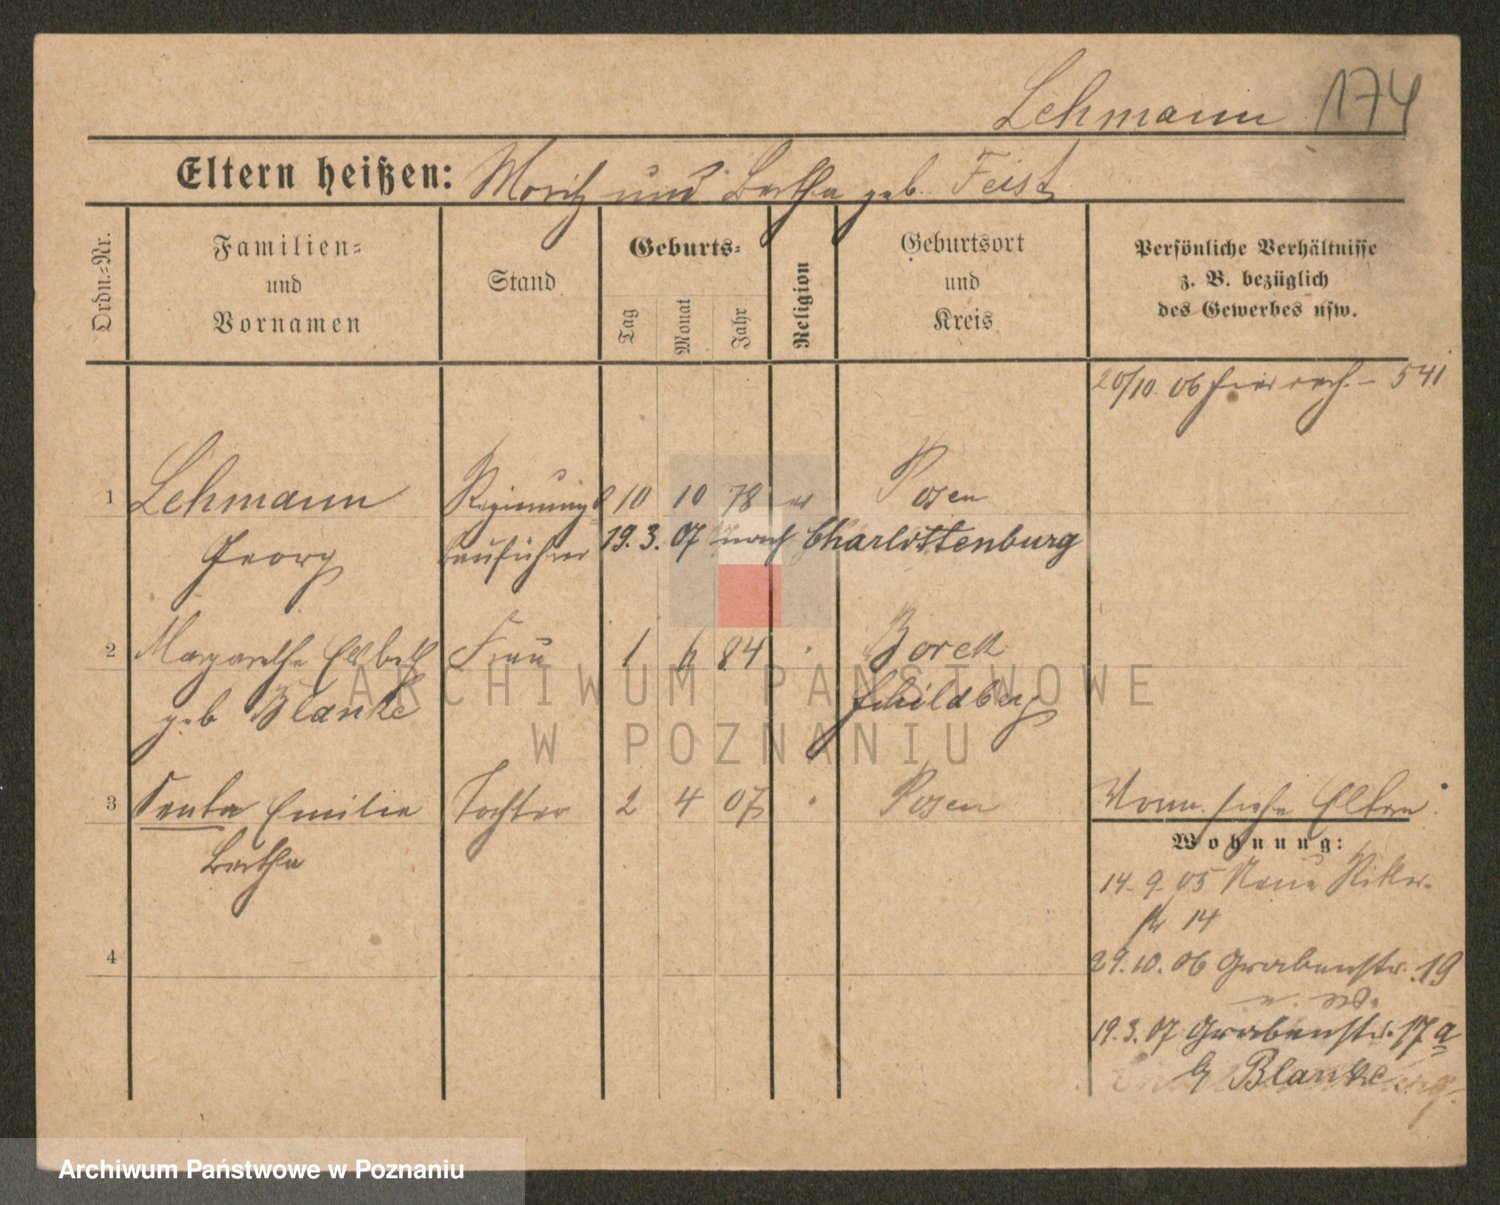 Lehmann 174
Eltern heißen: Moritz und Bertha geb. Feist
Ordn.-Nr.
Familien-
und
Vornamen
Stand
Geburts-
Tag
Monat
Jahr
Religion
Geburtsort
und
Kreis
Persönliche Verhältnisse
z. B. bezüglich
des Gewerbes usw.
20/10. 06 541
1 Lehmann Regierungs 10 10 78 Posen
Georg bauführer 19. 3. 07 nach Charlottenburg
2 Margarethe Frau 1 6 84 Borek
geb Blanke Schildberg
3 Senta Emilie Tochter 2 4 07 Posen siehe Eltern
Bertha
Wohnung:
14. 9. 05 Neue
str 14
4
29. 10. 06 Grabenstr. 19
19. 3. 07 Grabenstr. 17a
b Blanke
ARCHIWUM PAŃSTWOWE
W POZNANIU
Archiwum Państwowe w Poznaniu